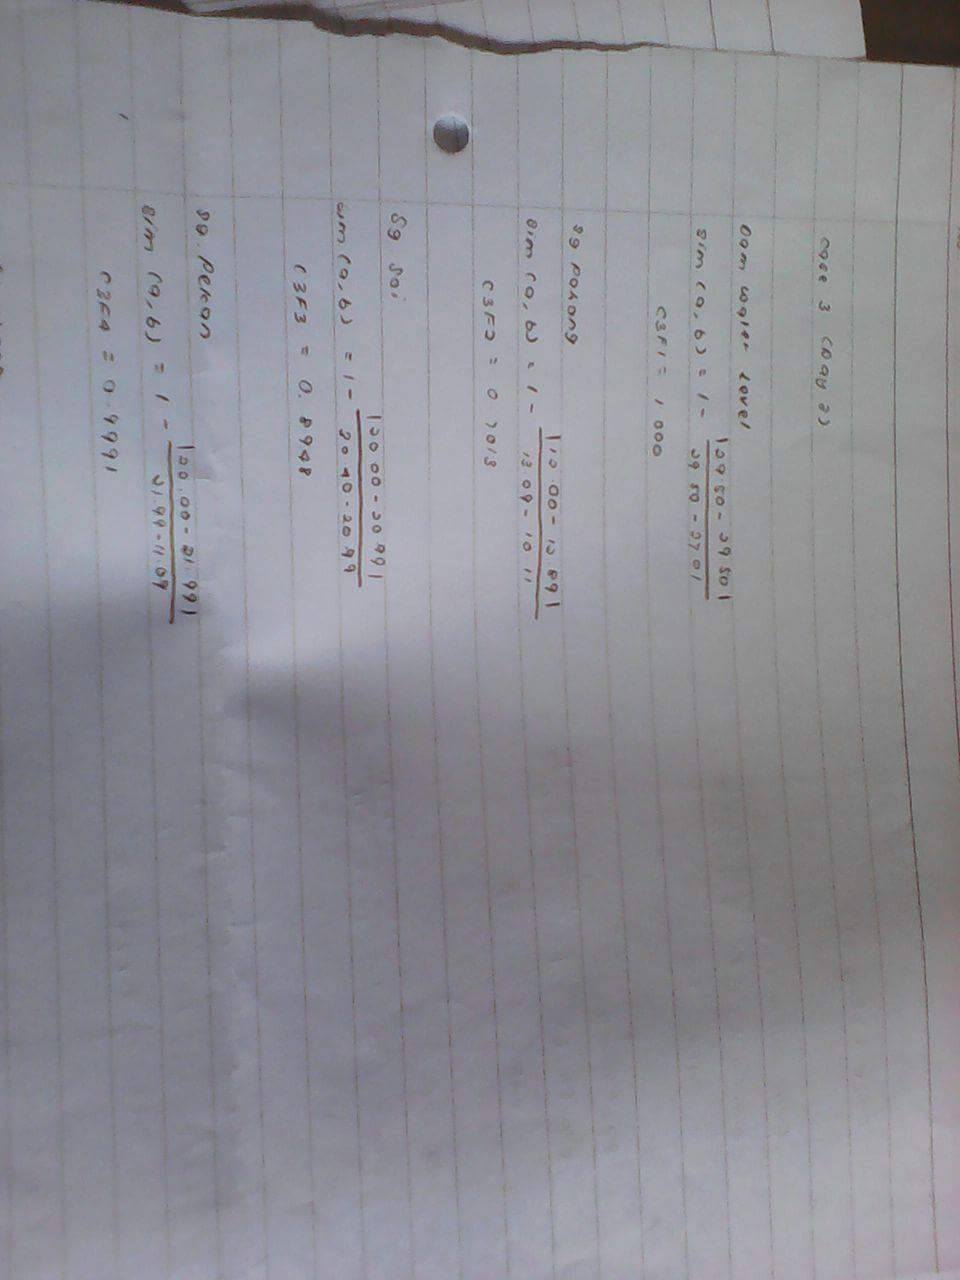 case 3 (Day 3)
Dam water level
sim (a, b) = 1 - |29.50 - 29.50|
29.50 - 27.01
C3F1 = 1.000
Sg Pahang
sim (a, b) = 1 - |12.00 - 12.89|
13.09 - 10.11
C3F2 = 0 7013
Sg Sai
sim (a, b) = 1 - |30 00 - 30.99|
20.99
C3F3 = 0.8948
sg. Pekan
sim (a, b) = 1 - |20.00 - 21.99|
21.99 - 11.09
C3F4 = 0.9991